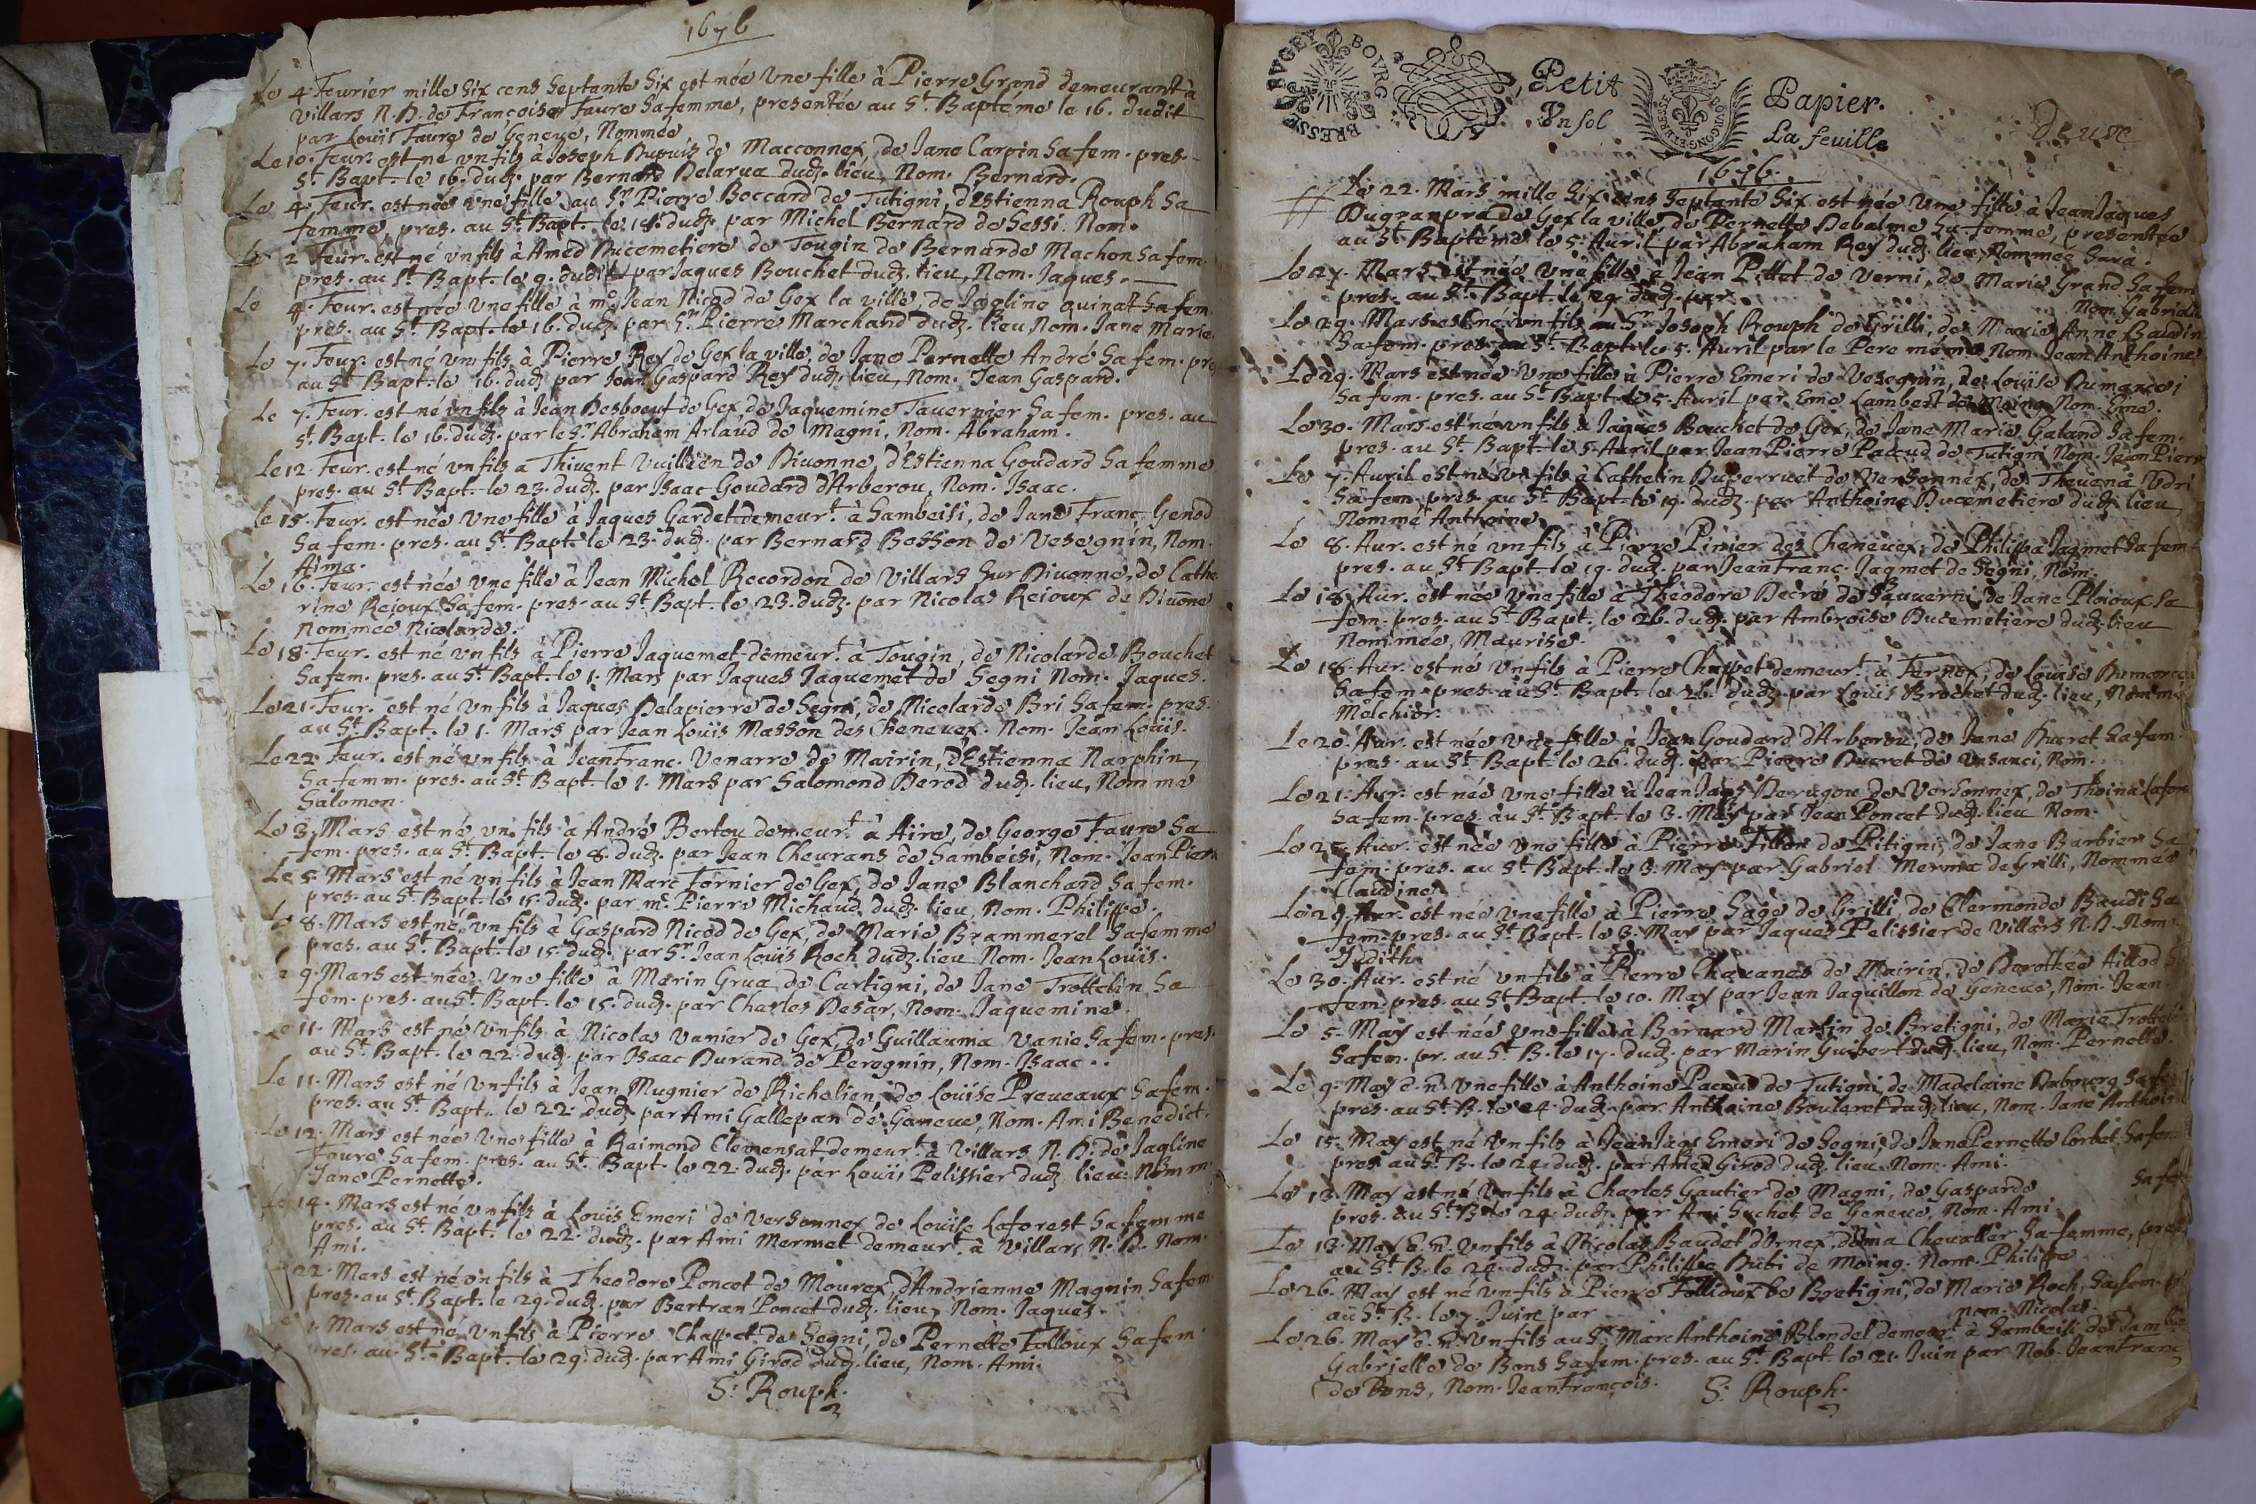 1676
Le 4 Feurier mille Six cens Septante Six est née Vne fille à Pierre Grand demeurant à
Villars N. D. de Françoise Faure Sa femme, presentée au St. Bapteme le 16. dudit
par Louïs Faure de Geneve, Nommée
Le 10. Feur. est né vn fils à Joseph Dupuis de Macconnex, de Jane Carpin Sa fem. pres.
St. Bapt. le 16. dudt. par Bernard Delarua dudt. lieu, Nom. Bernard.
Le 4. Feur. est née vne fille au Sr. Pierre Boccard de Tutigni, d'Estienna Rouph Sa
femme, pres. au St. Bapt. le 18. dudt. par Michel Bernard de Sessi. Nom.
Le 2 Feur. est né vn fils à Amed Ducemetiere de Tougin de Bernarde Machon Sa fem.
pres. au St. Bapt. le 9. dudit par Jaques Bouchet dudt. lieu, Nom. Jaques.
Le 4. Feur. est née Vne fille à me. Jean Nicod de Gex la ville, de Jaqline Quinat Sa fem.
pres. au St. Bapt. le 16. dudt. par Sr. Pierre Marchand dudt. lieu Nom. Jane Marie
Le 7. Feur. est né vn fils à Pierre Rey de Gex la ville, de Jane Pernette André Sa fem. pre
au St. Bapt. le 16. dudt. par Jean Gaspard Rey dudt. lieu, Nom. Jean Gaspard.
Le 7. Feur. est né vn fils à Jean Desboeuf de Gex de Jaquemine Tavernier Sa fem. pres. au
St. Bapt. le 16. dudt. par le Sr. Abraham Arlaud de Magni, Nom. Abraham.
Le 12. Feur. est né vn fils a Thivent Vuillien de Divonne, d'Estienna Goudard Sa femme
pres. au St. Bapt. le 23. dudt. par Isaac Goudard d'Arberou, Nom. Isaac.
Le 15. Feur. est née Vne fille à Jaques Gardet demeurt. à Sambeisi, de Jane Franc. Genod
Sa fem. pres. au St. Bapt. le 23. dudt. par Bernard Bosson de Vesegnin, Nom.
Aima.
Le 16. Feur. est née Vne fille à Jean Michel Recordon de Villars Sur Divonne, de Cathe
rine Rejoux Sa fem. pres. au St. Bapt. le 23. dudt. par Nicolas Rejoux de Divonne
Nommée Nicolarde.
Le 18. Feur. est né vn fils à Pierre Jaquemet demeurt. à Tougin, de Nicolarde Bouchet
Sa fem. pres. au St. Bapt. le 1. Mars par Jaques Jaquemet de Segni Nom. Jaques.
Le 21. Feur. est né vn fils à Jaques Delapierre de Segni, de Nicolarde Bri Sa fem. pres.
au St. Bapt. le 1. Mars par Jean Louïs Masson des Chenevex. Nom. Jean Louïs.
Le 22. Feur. est né vn fils à Jean Franc. Venarre de Mairin, d'Estienna Narphin
Sa femm. pres. au St. Bapt. le 1. Mars par Salomond Derod dudt. lieu, Nommé
Salomon.
Le 3. Mars est né vn fils à André Bertou demeurt. à Aïre, de George Faure Sa
fem. pres. au St. Bapt. le 8. dudt. par Jean Cheurans de Sambeisi, Nom. Jean Pierre
Le 5 Mars est né vn fils à Jean Marc Fornier de Gex, de Jane Blanchard Sa fem.
pres. au St. Bapt. le 15. dudt. par me. Pierre Michaud dudt. lieu, Nom. Philippe.
Le 8. Mars est né vn fils à Gaspard Nicod de Gex, de Marie Brammerel Sa femme
pres. au St. Bapt. le 15. dudt. par Sr. Jean Louïs Roch dudt. lieu Nom. Jean Louïs.
Le 9. Mars est née Vne fille à Marin Grua de Cartigni, de Jane Trottelin Sa
fem. pres. au St. Bapt. le 15. dudt. par Charles Desar, Nom. Jaquemine.
Le 11. Mars est né vn fils à Nicolas Vanier de Gex, de Guillauma Vanie Sa fem. pres.
au St. Bapt. le 22. dudt. par Isaac Durand de Peregnin, Nom. Isaac.
Le 11. Mars est né vn fils à Jean Mugnier de Richelien, de Louïse Preveaux Sa fem.
pres. au St. Bapt. le 22. dudt. par Ami Gallepan de Geneve, Nom. Ami Benedict.
Le 12. Mars est née Vne fille à Raimond Clemensat demeurt. à Villars N. D. de Jaqline
Foure Sa fem. pres. au St. Bapt. le 22. dudt. par Louïs Pelissier dudt. lieu. Nomm.
Jane Pernette.
Le 14. Mars est né vn fils à Louïs Emeri de Versonnex de Louïse Laforest Sa femme
pres. au St. Bapt. le 22. dudt. par Ami Mermet demeurt. à Villars N. D. Nom.
Ami.
22. Mars est né vn fils à Theodore Poncet de Mourex, d'Andrienne Magnin Sa fem.
pres. au St. Bapt. le 29. dudt. par Bertran Poncet dudt. lieu, Nom. Jaques.
1. Mars est né vn fils à Pierre Chappet de Segni, de Pernette Folloux Sa fem.
pres. au St. Bapt. le 29. dudt. par Ami Girod dudt. lieu, Nom. Ami.
S: Rouph.
BRESSE BVGEY BOVRG
Petit Papier.
Vn sol La feuille
BRESSE BOVRG
deux
1676.
Le 22. Mars mille Six cens Septante Six est née Vne fille à Jean Jaques
Dugranpra de Gex la ville de Pernette Debalme Sa femme, presentée
au St. Bapteme le 5. Avril par Abraham Rey dudt. lieu, Nommée Sara.
Le 27. Mars est née Vne fille à Jean Pittet de Verni, de Marie Grand Sa fem.
pres. au St. Bapt. le 29. dudt. par Nom. Gabriele
Le 29. Mars est né vn fils au Sr. Joseph Rouph de Grilli, de Marie Anne Baudin
Sa fem. pres. au St. Bapt. le 5. Avril par le Pere même Nom. Jean Anthoine
Le 29. Mars est née Vne fille à Pierre Emeri de Vesegnin, de Louïse Dumarcei
Sa fem. pres. au St. Bapt. le 5. Avril par Eme Lambert de Moing Nom. Eme.
Le 30. Mars est né vn fils à Jaques Bouchet de Gex, de Jane Marie Galand Sa fem.
pres. au St. Bapt. le 5. Avril par Jean Pierre Pacoud de Tutigni Nom. Jean Pierre
Le 7. Avril est né vn fils à Cathelin Duperruet de Versonnex, de Thevena Vdri
Sa fem. pres. au St. Bapt. le 19. dudt. par Anthoine Ducemetiere dudt. lieu
Nommé Anthoine.
Le 8. Avr. est né vn fils à Pierre Pinier des Chenevex, de Philippa Jaqmet Sa fem.
pres. au St. Bapt. le 19. dudt. par Jean Franc. Jaqmet de Segni, Nom.
Le 18. Avr. est née Vne fille à Theodore Decré de Sauverni, de Jane Ploioux Sa
fem. pres. au St. Bapt. le 26. dudt. par Ambroise Ducemetiere dudt. lieu
Nommée, Maurise.
Le 18. Avr. est né Vn fils à Pierre Chappet demeurt. à Fernex, de Louïse Dumarcei
Sa fem. pres. au St. Bapt. le 26. dudt. par Louïs Brochet dudt. lieu, Nommé
Melchior.
Le 20. Avr. est née Vne fille à Jean Goudard d'Arberou, de Jane Ducret Sa fem.
pres. au St. Bapt. le 26. dudt. par Pierre Ducret de Vesanci, Nom.
Le 21. Avr. est née Vne fille à Jean Jaqs Derugou de Versonnex, de Thoina Lafore
Sa fem. pres. au St. Bapt. le 3. May par Jean Poncet dudt. lieu Nom.
Le 25. Avr. est née Vne fille à Pierre Fillion de Pitigni, de Jane Barbier Sa
fem. pres. au St. Bapt. le 3. May par Gabriel Mermet de Grilli, Nommée
Claudine.
Le 29. Avr. est née Vne fille à Pierre Sage de Grilli, de Clermonde Baudi Sa
fem. pres. au St. Bapt. le 3. May par Jaques Pelissier de Villars N. D. Nom.
Judith.
Le 30. Avr. est né vn fils à Pierre Chavanes de Mairin, de Dorothée Aillod S
fem. pres. au St. Bapt. le 10. May par Jean Jaquillon de Geneve, Nom. Jean
Le 5. May est née Vne fille à Bernard Martin de Bretigni, de Marie Trottel
Sa fem. pr. au St. B. le 17. dudt. par Marin Guibert dudt. lieu, Nom. Pernette.
Le 9. May e. n. Vne fille à Anthoine Pacoud de Tutigni, de Madelaine Dubourg Sa fe
pres. au St. B. le 24. dudt. par Anthoine Bouleret dudt. lieu, Nom. Jane Anthoi
Le 15. May est né Vn fils à Jean Jaqs Emeri de Segni, de Jane Pernette Corbet Sa fem.
pres. au St. B. le 24. dudt. par Amed Girod dudt. lieu Nom. Ami.
Le 13. May est né Vn fils à Charles Gautier de Magni, de Gasparde Sa fe
pres. au St. B. le 24. dudt. par Ami Suchet de Geneve, Nom. Ami.
Le 13. May e. n. Vn fils à Nicolas Baudet d'Ornex, d'Ema Chevalier Sa femme, pres
au St. B. le 24. dudt. par Philippe Dubi de Moing. Nom. Philippe
Le 26. May est né vn fils à Pierre Follioux de Bretigni, de Marie Roch, Sa fem.
au St. B. le 7. Juin par nom. Nicolas.
Le 26. May e. n. Vn fils au Sr. Marc Anthoine Blondel demeurt. à Sambeisi de
Gabrielle de Bons Sa fem. pres. au St. Bapt. le 21. Juin par Nob. Jean Franç
de Bons, Nom. Jean François. S: Rouph.